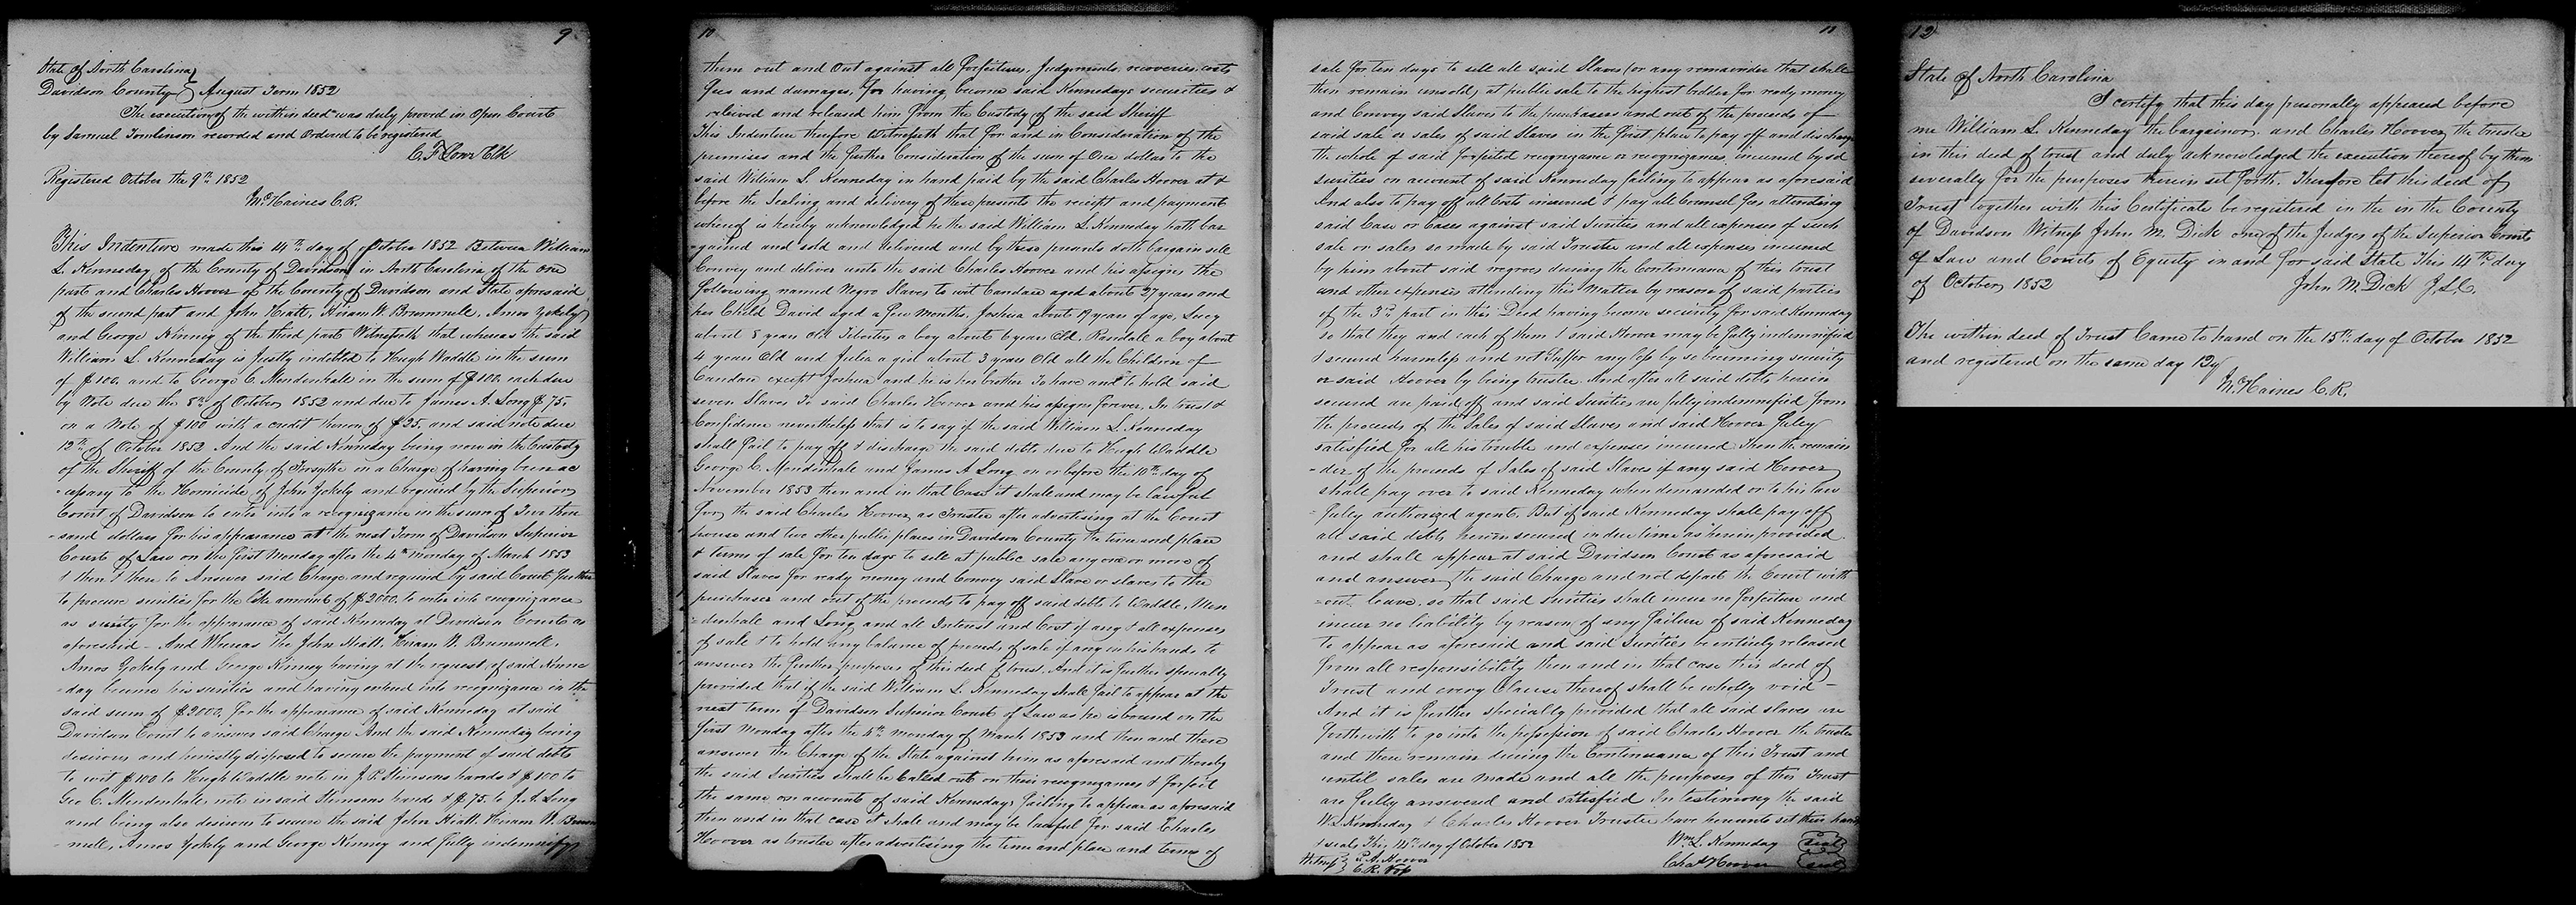 9
State of North Carolina
Davidson County } August Term 1852
The execution of the within deed was duly proved in Open Court
by Samuel Tomlinson recorded and Ordered to be registered
C. F. Lowe Clk
Registered October the 9th 1852
M. Haines C.R.
This Indenture made this 14th day of October 1852 Between William
L. Kenneday of the County of Davidson in North Carolina of the one
part and Charles Hoover of the County of Davidson and State aforesaid
of the second part and John Hiatt, Hiram W. Brummell, Amos Yokely
and George Kinney of the third part Witnesseth that whereas the said
William L. Kenneday is justly indebted to Hugh Waddle in the sum
of $100. and to George C. Mendenhall in the sum of $100. each due
by Note due the 8th of October 1852 and due to James A. Long $75.
on a Note of $100 with a credit thereon of $25. and said note due
12th of October 1852 And the said Kenneday being now in the Custody
of the Sheriff of the County of Forsythe in a Charge of having been ac
-cessary to the Homicide of John Yokely and required by the Superior
Court of Davidson to enter into a recognizance in the sum of Two thou
-sand dollars for his appearance at the next Term of Davidson Superior
Courts of Law on the first Monday after the 4th Monday of March 1853
& then & there to Answer said Charge and required by said Court further
to procure surities for the like amount of $2000. to enter into recognizance
as surity for the appearance of said Kenneday at Davidson Courts as
aforesaid - And Whereas the John Hiatt, Hiram W. Brummell,
Amos Yokely and George Kinney having at the request of said Kenne
-day become his surities and having entered into recognizance in the
said sum of $2000. for the appearance of said Kenneday at said
Davidson Court to answer said Charge And the said Kenneday being
desirous and honestly disposed to secure the payment of said debts
to wit $100 to Hugh Waddle note in J. P. Stimsons hands & $100 to
Geo C. Mendenhall note in said Stimsons hands & $75. to J. A. Long
and being also desirous to secure the said John Hiatt, Hiram W. Brum
-mell, Amos Yokely and George Kinney and fully indemnify
10
them out and Out against all forfeitures, Judgements, recoveries, costs
fees and damages, for having become said Kennedays securities &
relieved and released him from the Custody of the said Sheriff
This Indenture therefore Witnesseth that for and in Consideration of the
premises and the further Consideration of the sum of One dollar to the
said William L. Kenneday in hand paid by the said Charles Hoover at &
before the Sealing and delivery of these presents the receipt and payment
whereof is hereby acknowledged he the said William L. Kenneday hath bar
-gained and sold and delivered and by these presents doth bargain sell
Convey and deliver unto the said Charles Hoover and his assigns the
following named Negro Slaves to wit Candace aged about 27 years and
her Child David aged a few months, Joshua about 19 years of age, Lucy
about 8 years old Tiberius a boy about 6 years Old, Randale a boy about
4 years Old and Julia a girl about 3 years Old all the Children of
Candace except Joshua and he is her brother To have and to hold said
seven Slaves To said Charles Hoover and his assigns forever, In trust &
Confidence nevertheless that is to say if the said William L. Kenneday
shall fail to pay off & discharge the said debts due to Hugh Waddle
George C. Mendenhall and James A Long on or before the 10th day of
November 1853 then and in that Case it shall and may be lawful
for the said Charles Hoover as Trustee after advertising at the Court
house and two other public places in Davidson County the time and place
& terms of sale for ten days to sell at public sale any one or more of
said Slaves for ready money and Convey said Slave or slaves to the
purchaser and out of the proceeds to pay off said debts to Waddle, Men
-denhall and Long and all Interest and Cost if any & all expenses
of sale & to hold any balance of proceeds of sale if any in his hands to
answer the further purposes of this deed of trust. And it is further specially
provided that if the said William L. Kenneday shall fail to appear at the
next term of Davidson Superior Court of Law as he is bound on the
first Monday after the 4th Monday of March 1853 and then and there
answer the Charge of the State against him as aforesaid and thereby
the said Surities shall be Called out on their recognizances & forfeit
the same on account of said Kennedays failing to appear as aforesaid
then and in that case it shall and may be lawful for said Charles
Hoover as trustee after advertising the time and place and terms of
11
sale for ten days to sell all said Slaves (or any remainder that shall
then remain unsold) at public sale to the highest bidder for ready money
and Convey said Slaves to the purchasers and out of the proceeds of
said sale or sales of said Slaves in the first place to pay off and discharge
the whole of said forfeited recognizance or recognizances incurred by sd
surities on account of said Kenneday failing to appear as aforesaid
And also to pay off all Costs incurred & pay all Counsel fees attending
said Case or Cases against said Surities and all expenses of such
sale or sales so made by said Trustee and all expenses incurred
by him about said negroes during the Continuance of this trust
and other expenses attending this Matter by reason of said parties
of the 3rd part in this Deed having become security for said Kenneday
so that they and each of them & said Hoover may be fully indemnified
& secured harmless and not Suffer any loss by so becoming security
or said Hoover by being trustee. And after all said debts herein
secured are paid off and said Surities are fully indemnified from
the proceeds of the Sales of said Slaves and said Hoover fully
satisfied for all his trouble and expenses incurred Then the remain
-der of the proceeds of Sales of said Slaves if any said Hoover
shall pay over to said Kenneday when demanded or to his law
-fully authorized agent. But if said Kenneday shall pay off
all said debts herein secured in due time as herein provided
and shall appear at said Davidson Court as aforesaid
and answer the said Charge and not depart the Court with
-out leave, so that said Surities shall incur no forfeiture and
incur no liability by reason of any failure of said Kenneday
to appear as aforesaid and said Surities be entirely released
from all responsibility then and in that case this deed of
Trust and every Clause thereof shall be wholly void -
And it is further specially provided that all said slaves are
forthwith to go into the possession of said Charles Hoover the trustee
and there remain during the Continuance of this Trust and
until sales are made and all the purposes of this Trust
are fully answered and satisfied In testimony the said
W. L. Kenneday & Charles Hoover Trustee have hereunto set their hands
& seals This 14th day of October 1852 Wm L. Kenneday (seal)
Witness } P. A. Hoover Chas Hoover (seal)
} C. R. Fox
12
State of North Carolina
I certify that this day personally appeared before
me William L. Kenneday the bargainor and Charles Hoover the trustee
in this deed of trust and duly acknowledged the execution thereof by them
severally for the purposes therein set forth. Therefore let this deed of
Trust together with this Certificate be registered in the in the County
of Davidson Witness John M. Dick one of the Judges of the Superior Courts
of Law and Courts of Equity in and for said State This 14th day
of October 1852 John M. Dick J.S.C.
The within deed of Trust Came to hand on the 15th day of October 1852
and registered on the same day by
M. Haines C.R.